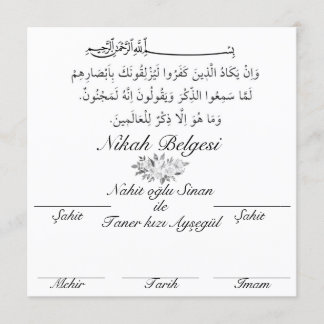 بِسْمِ اللَّهِ الرَّحْمَنِ الرَّحِيمِ
وَاِنْ يَكَادُ الَّذِينَ كَفَرُوا لَيُزْلِقُونَكَ بِأَبْصَارِهِمْ
لَمَّا سَمِعُوا الذِّكْرَ وَيَقُولُونَ إِنَّهُ لَمَجْنُونٌ.
وَمَا هُوَ اِلَّا ذِكْرٌ لِلْعَالَمِينَ.
Nikah Belgesi
Nahit oğlu Sinan
ile
Taner kızı Ayşegül
Şahit Şahit
Mehir Tarih Imam